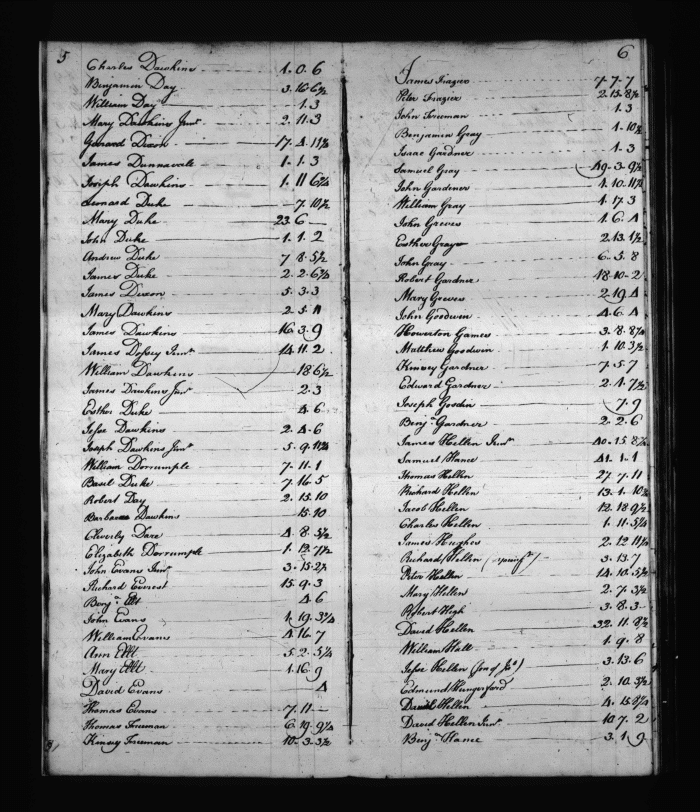 5
Charles Dawkins 1. 0. 6
Benjamin Day 3. 16. 6½
William Day 1. 3
Mary Dawkins Junr 2. 11. 3
Gerrard Dixon 17. 4. 11½
James Dunnavale 1. 1. 3
Joseph Dawkins 1. 11 6¾
Leonard Duke 7. 10½
Mary Duke 23. 6 —
John Duke 1. 1. 2
Andrew Duke 7 8. 5½
James Duke 2. 2. 6¾
James Dixon 5. 3. 3
Mary Dawkins 2. 5. 4
James Dawkins 16. 3. 9
James Dossey Junr 14. 11. 2
William Dawkins 18 6½
James Dawkins Junr 2. 3
Esther Duke 4. 6
Jesse Dawkins 2. 4. 6
Joseph Dawkins Junr 5. 9. 11¾
William Dorrumple 7. 11. 1
Basil Duke 7. 16. 5
Robert Day 2. 15. 10
Barbara Dawkins 15. 10
Cleverly Dare 4. 8. 5½
Elizabeth Dorrumple 1. 12. 7½
John Evans Junr 3. 15. 2½
Richard Everest 15. 9. 3
Benja Ellt 4. 6
John Evans 1. 19. 3¾
William Evans 4. 16. 7
Ann Ellt 5. 2. 5¼
Mary Ellt 1. 16. 9
David Evans 4
Thomas Evans 7. 11 —
Thomas Freeman 6. 19. 9¼
Kinsey Freeman 10. 3. 3½
6
James Frazier 7. 7. 7
Peter Frazier 2. 15. 8½
John Freeman 1. 3
Benjamin Gray 1. 10½
Isaac Gardner 1. 3
Samuel Gray 49. 3. 9½
John Gardener 1. 10. 11½
William Gray 1. 17. 3
John Greves 1. 6. 4
Esther Grays 2. 13. 1½
John Gray 6. 5. 8
Robert Gardner 18. 10. 2
Mary Greves 2. 19. 4
John Goodwin 4. 6. 4
Howerton Games 3. 8. 8¼
Matthew Goodwin 1. 10. 3½
Kinsey Gardner 7. 5. 7
Edward Gardner 2. 1. 7½
Joseph Goodin 7. 9
Benja Gardner 2. 2. 6
James Hellen Junr 40. 15. 8¾
Samuel Hance 41. 1. 1
Thomas Hellen 27. 7. 11
Richard Hellen 13. 1. 10¾
Jacob Hellen 12. 18. 9½
Charles Hellen 1. 11. 5¼
James Hughes 2. 12 11½
Richard Hellen 3. 13. 7
Peter Hellen 14. 10. 5½
Mary Hellen 2. 7. 3½
Robert High 3. 8. 3
David Hellen 32. 11. 8½
William Hall 1. 9. 8
Jesse Hellen (son of Jas) 3. 13. 6
Edmund Hungerford 2. 10. 3½
David Hellin 4. 15. 8¼
David Hellen Junr 10 7. 2
Benja Hance 3. 1. 9